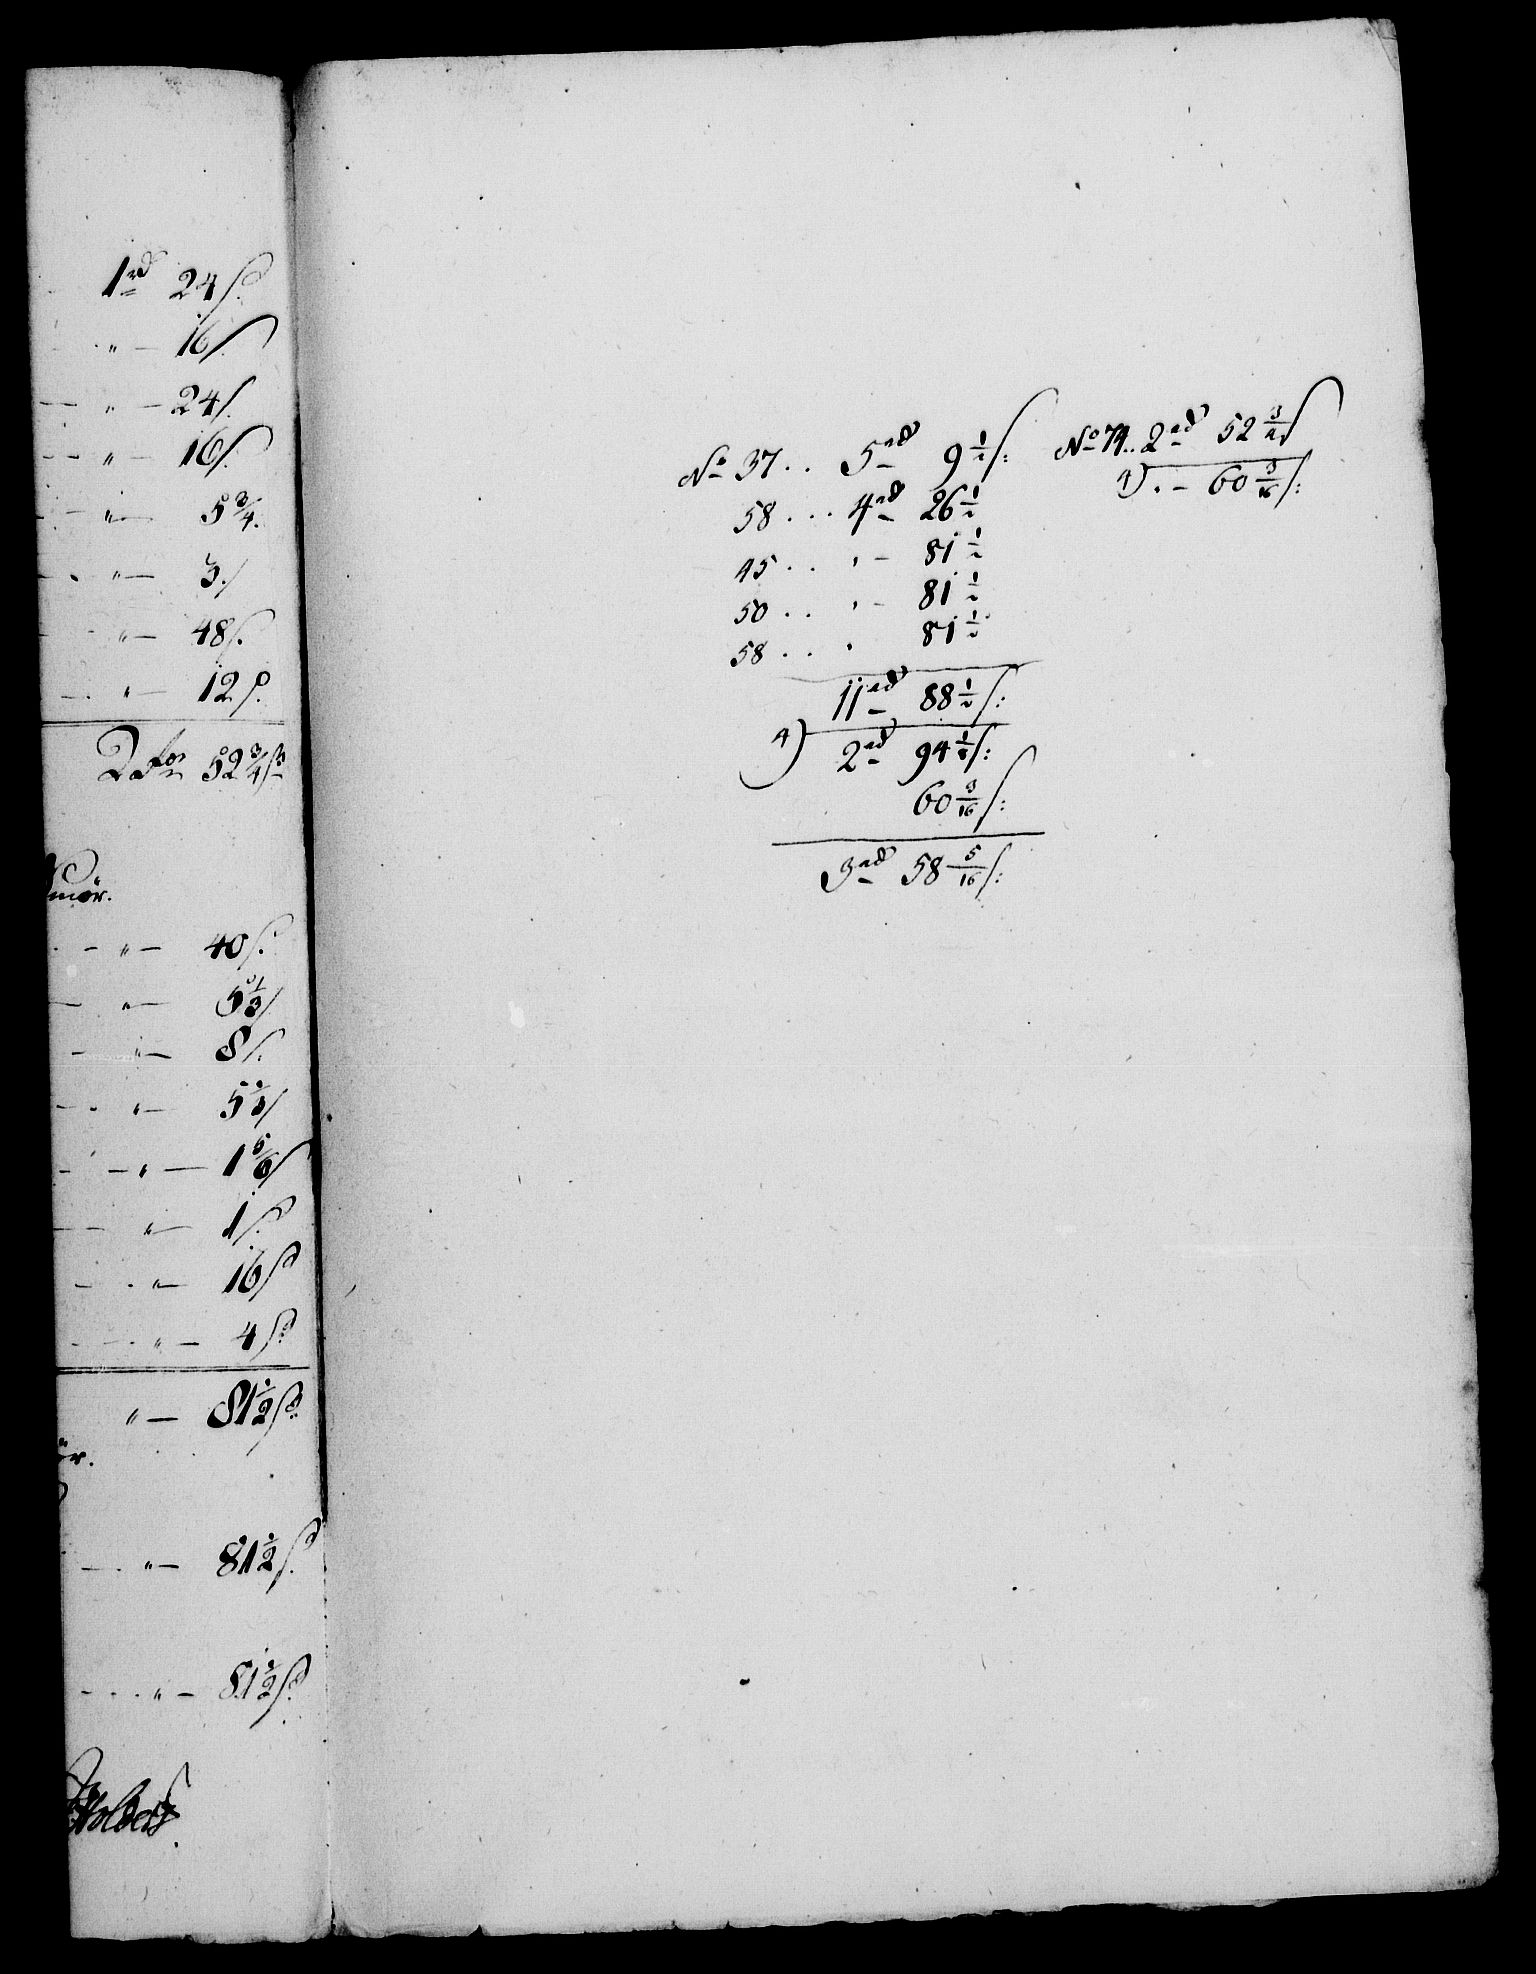 1rd 24 ß.
" — 16 ß.
— " — 24 ß.
— " — 16 ß.
— " — 5 3/4.
— " — 3 ß
" — 48 ß.
— " — 12 ß.
2 rdr 52 3/4 ß
Smör.
— " — 40 ß.
— " — 5 1/3 ß
— " — 8 ß.
— " — 5 1/3 ß
— " — 1 5/6 ß
— " — 1 ß.
— " — 16 ß
— " — 4 ß
" — 81 1/2 ß
ör.
— " — 81 1/2 ß.
— " — 81 1/2 ß.
No 37 .. 5rd 9 1/2 ß:
58 ... 4rd 26 1/2
45 .. " — 81 1/2
50 .. " — 81 1/2
58 .. " 81 1/2
11rd 88 1/2 ß:
4) 2rd 94 1/8 ß:
60 3/16 ß:
3rd 58 5/16 ß:
No 74 .. 2rd 52 3/4 ß
4) . — 60 3/16 ß: